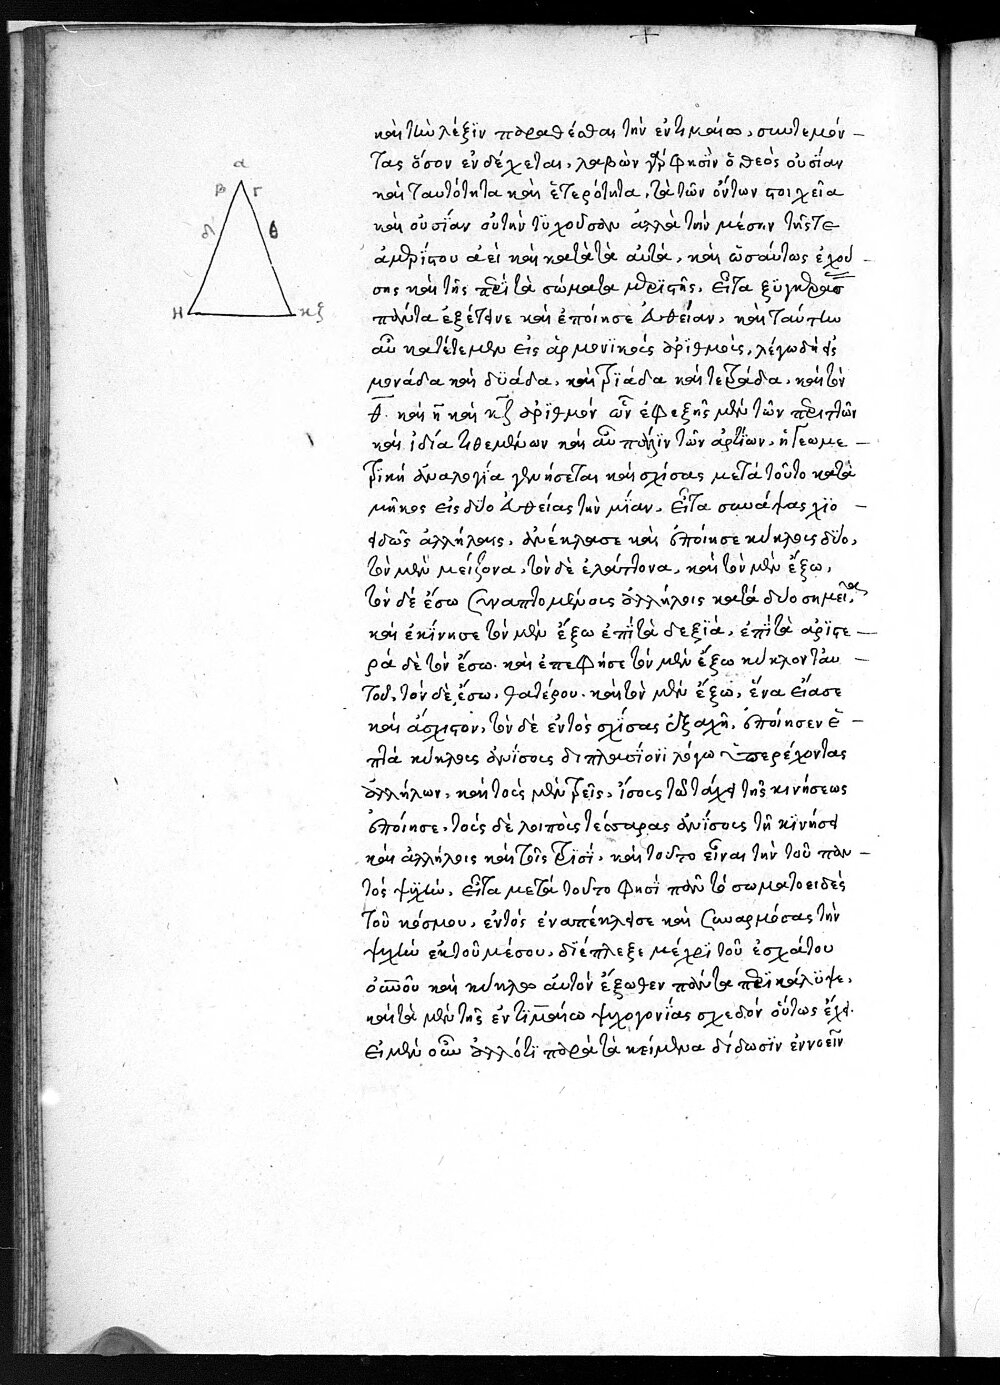 α
β γ
δ θ
Η κζ
καὶ τὴν λέξιν παραθέσθαι τὴν ἐν τιμαίω, συντεμόν
τας ὅσον ἐνδέχεται. λαβὼν γάρ φησὶν ὁ θεὸς οὐσίαν
καὶ ταυτότητα καὶ ἑτερότητα, τὰ τῶν ὄντων στοιχεῖα
καὶ οὐσίαν οὐ τὴν τυχοῦσαν ἀλλὰ τὴν μέσην τῆς τε
ἀμερίστου ἀεὶ καὶ κατὰ τὰ αὐτὰ, καὶ ὡσαύτως ἐχού
σης καὶ τῆς περὶ τὰ σώματα μεριστῆς. εἶτα ξυγκεράσας
πάντα ἐξέτεινε καὶ ἐποίησε εὐθεῖαν, καὶ ταύτην
αὖ κατέτεμεν εἰς ἁρμονικοὺς ἀριθμοὺς, λέγω δὴ εἰς
μονάδα καὶ δυάδα, καὶ τριάδα καὶ τετράδα, καὶ τὸν
θ. καὶ η καὶ κζ ἀριθμὸν ὧν ἐφεξῆς μὲν τῶν περιττῶν
καὶ ἰδία τιθεμένων καὶ αὖ πάλιν τῶν ἀρτίων, ἡ γεωμε
τρικὴ ἀναλογία γενήσεται καὶ σχίσας μετὰ τοῦτο κατὰ
μῆκος εἰς δύο εὐθείας τὴν μίαν. εἶτα συνάψας χιο
ειδῶς ἀλλήλαις, ἀνέκλασε καὶ ἐποίησε κύκλους δύο,
τὸν μὲν μείζονα, τὸν δὲ ἐλάττονα, καὶ τὸν μὲν ἔξω,
τὸν δὲ ἔσω συναπτομένους ἀλλήλοις κατὰ δύο σημεῖα,
καὶ ἐκίνησε τὸν μὲν ἔξω ἐπὶ τὰ δεξιὰ, ἐπὶ τὰ ἀριστε
ρὰ δὲ τὸν ἔσω. καὶ ἐπέφησε τὸν μὲν ἔξω κύκλον ταυ
τοῦ, τὸν δὲ ἔσω, θατέρου. καὶ τὸν μὲν ἔξω, ἕνα εἴασε
καὶ ἄσχιστον, τὸν δὲ ἐντὸς σχίσας ἑξαχῆ, ἐποίησεν ἑ
πτὰ κύκλους ἀνίσους διπλασίονι λόγω ὑπερέχοντας
ἀλλήλων, καὶ τοὺς μὲν τρεῖς, ἴσους τῶ τάχει τῆς κινήσεως
ἐποίησε, τοὺς δὲ λοιποὺς τέσσαρας ἀνίσους τῆ κινήσει
καὶ ἀλλήλοις καὶ τοῖς τρισὶ. καὶ τοῦτο εἶναι τὴν τοῦ παν
τὸς ψυχὴν. εἶτα μετὰ τοῦτο φησὶ πᾶν τὸ σωματοειδὲς
τοῦ κόσμου, ἐντὸς ἐναπέκλεισε καὶ συναρμόσας τὴν
ψυχὴν ἐκ τοῦ μέσου, διέπλεξε μέχρι τοῦ ἐσχάτου
οὐνοῦ καὶ κύκλω αὐτὸν ἔξωθεν πάντα περικάλυψε.
καὶ τὰ μὲν τῆς ἐν τιμαίω ψυχογονίας σχεδὸν οὕτως ἔχει.
εἰ μὲν οὖν ἄλλό τι παρὰ τὰ κείμενα δίδωσιν ἐννοεῖν